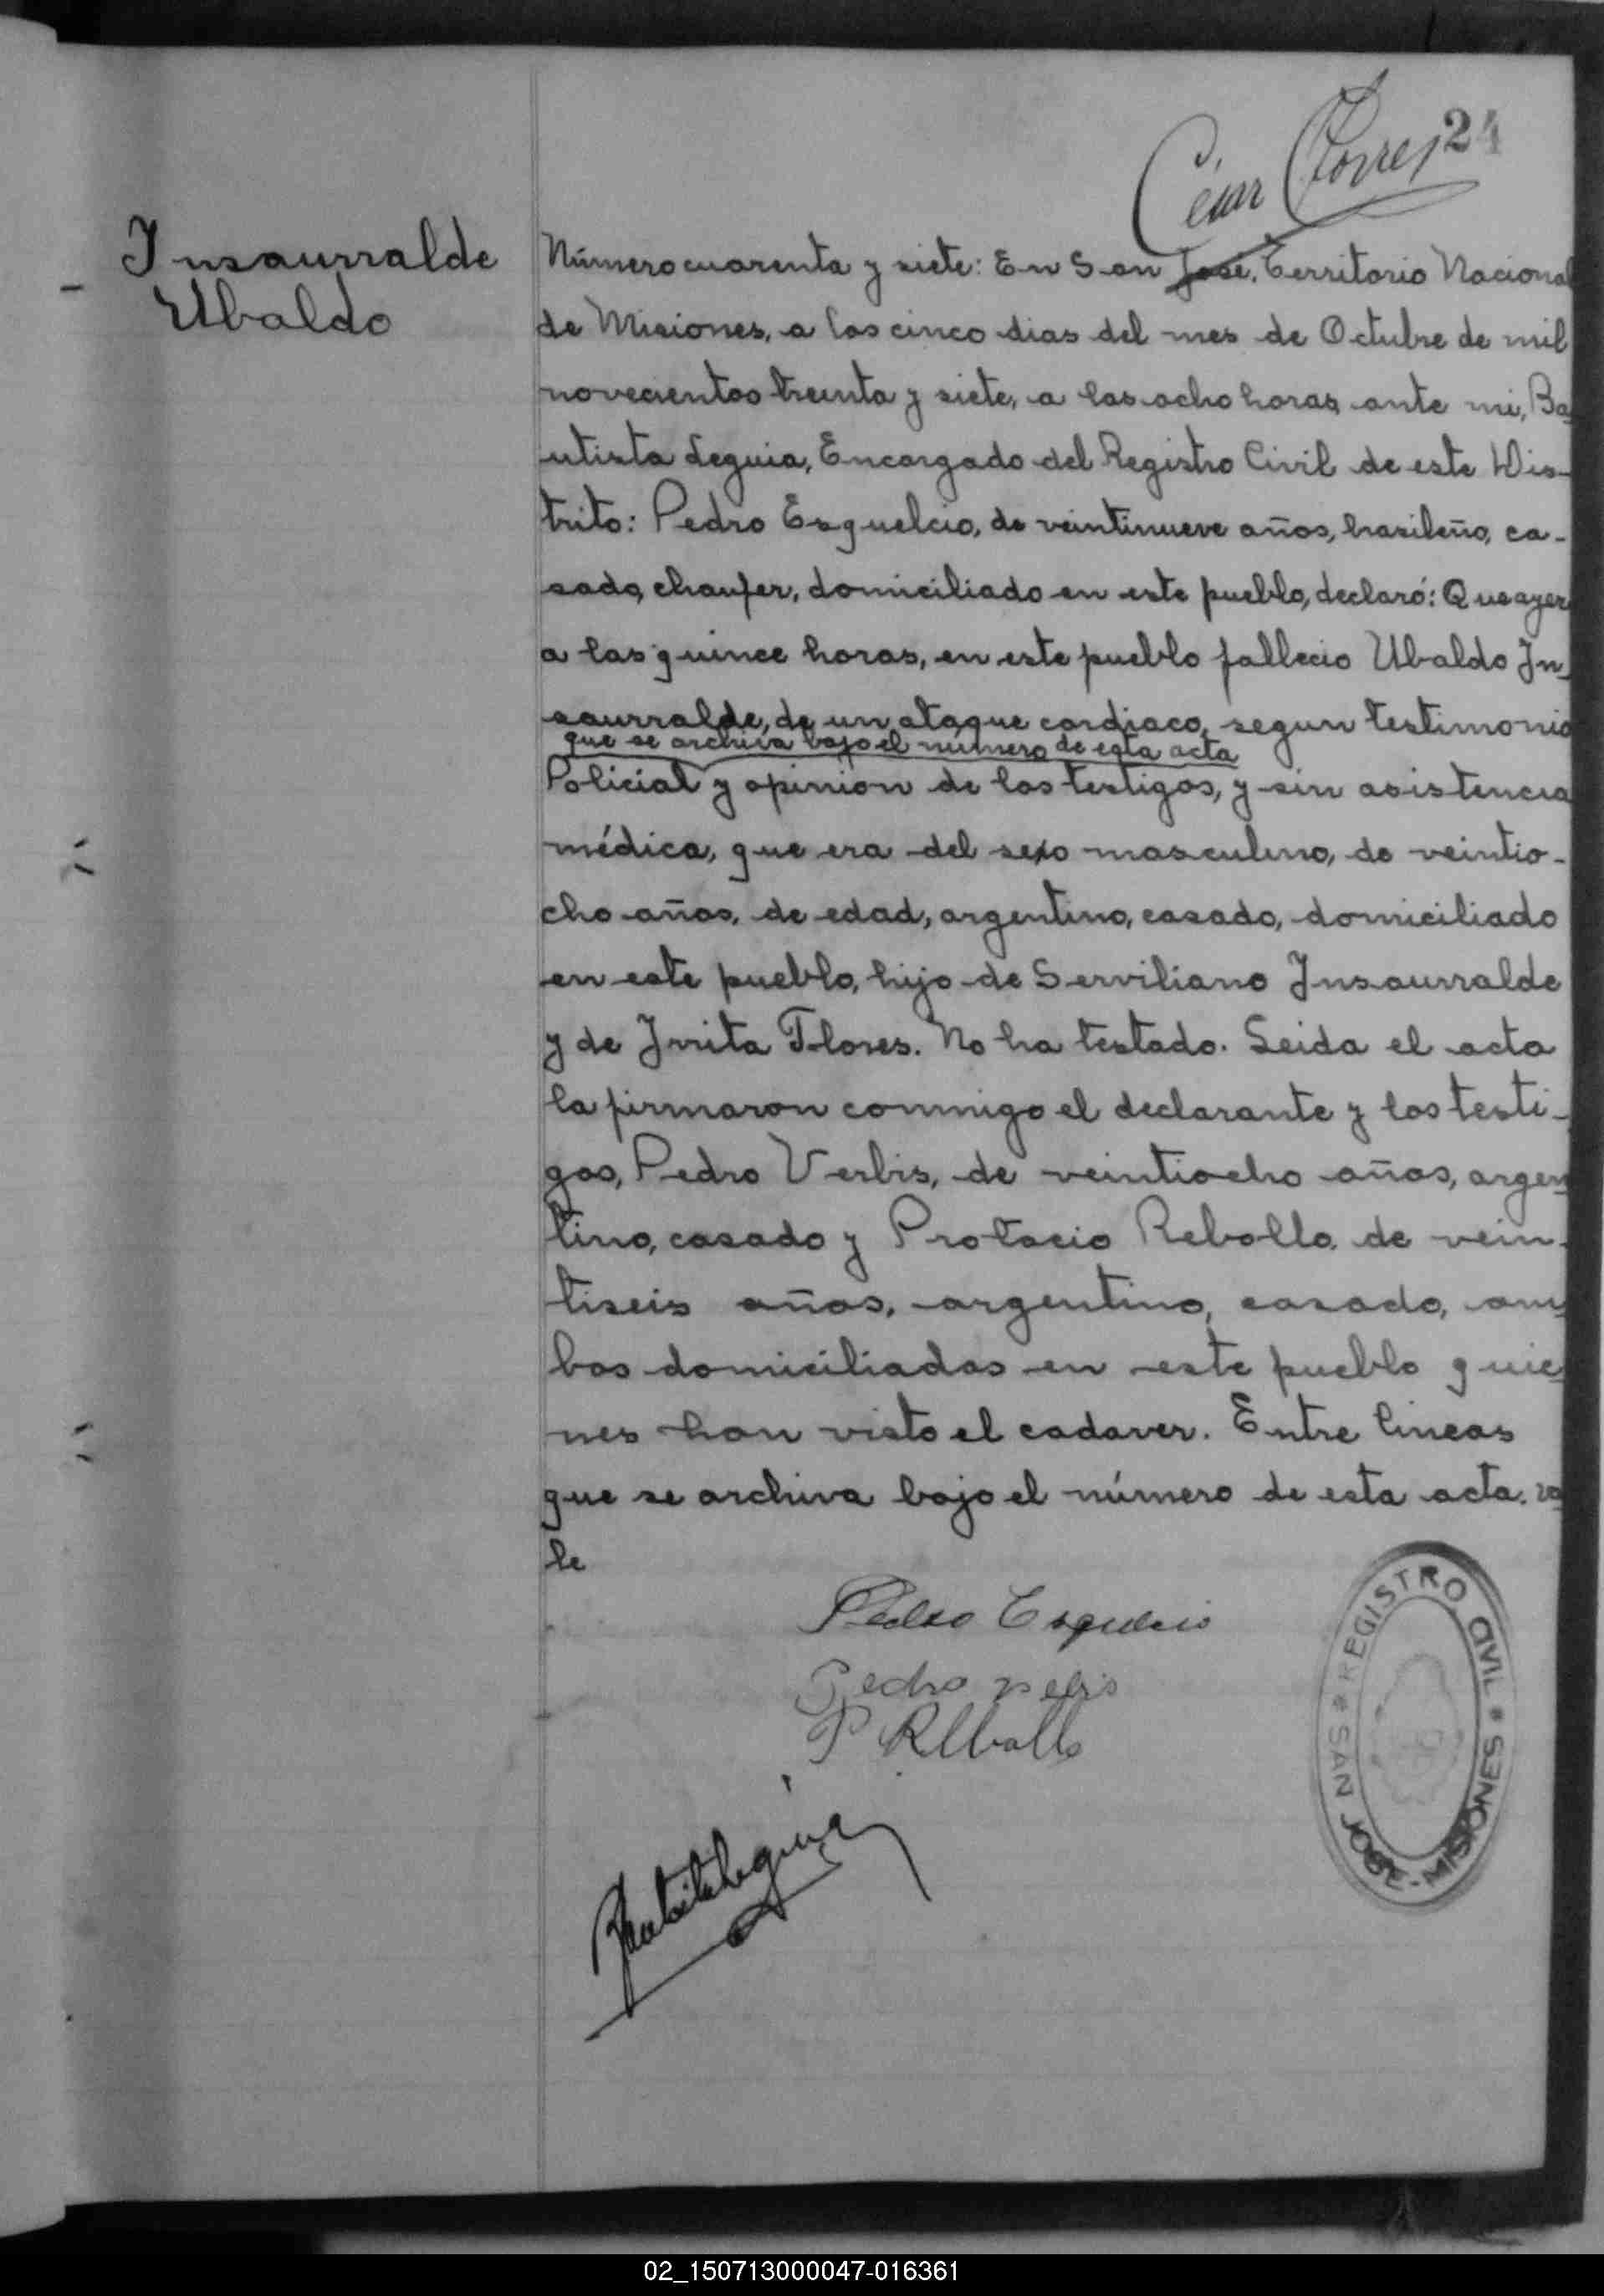 César Torres 24
Insaurralde
Ubaldo
Número cuarenta y siete: En San José, Territorio Nacional
de Misiones, a los cinco dias del mes de Octubre de mil
novecientos treinta y siete, a las ocho horas, ante mi, Ba
utista Leguia, Encargado del Registro Civil de este Dis-
trito: Pedro Esquelcio, de veintinueve años, brasileño, ca-
sado, chaufer, domiciliado en este pueblo, declaró: Que ayer
a las quince horas, en este pueblo fallecio Ubaldo In
saurralde, de un ataque cardiaco, segun testimonio
que se archiva bajo el número de esta acta
Policial y opinion de los testigos, y sin asistencia
médica, que era del sexo masculino, de veintio-
cho años, de edad, argentino, casado, domiciliado
en este pueblo, hijo de Serviliano Insaurralde
y de Irrita Flores. No ha testado. Leida el acta
la firmaron conmigo el declarante y los testi-
gos, Pedro Verbis, de veintiocho años, argen
tino, casado y Protacio Rebollo, de vein-
tiseis años, argentino, casado, am
bos domiciliados en este pueblo quie
nes han visto el cadaver. Entre lineas
que se archiva bajo el número de esta acta. va
le
Pedro Esquelcio
Pedro
P Rebollo
Bautista Leguia
REGISTRO CIVIL * SAN JOSE - MISIONES *
02_150713000047-016361